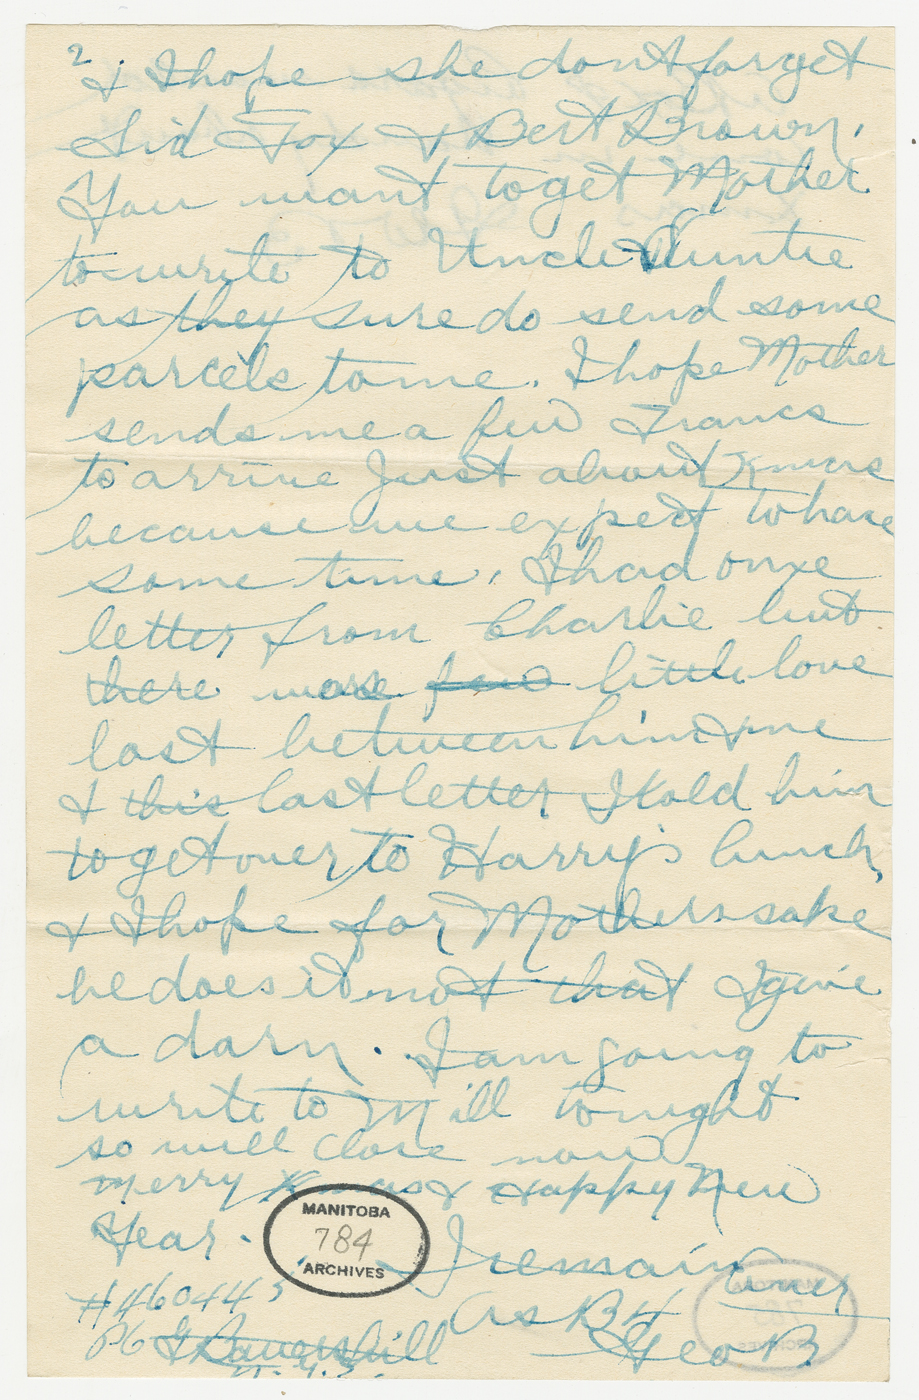 2.
& I hope she dont forget
Sid Fox & Bert Brown.
You want to get Mother
to write to Uncle & Auntie
as they sure do send some
parcels to me. I hope Mother
sends me a few Francs
to arrive Just about Xmas
because we expect to have
some time. I had onxe
letter from Charlie but
there was few little love
lost between him & me
& this last letter I told him
to get over to Harry's bunch,
& I hope for Mothers sake
he does it not that I give
a darn. I am going to
write to Mill tonight
so will close now
Merry Xmas & Happy New
Year.
I remain
MANITOBA
784
ARCHIVES
#460443
your
As B4
Geo B.